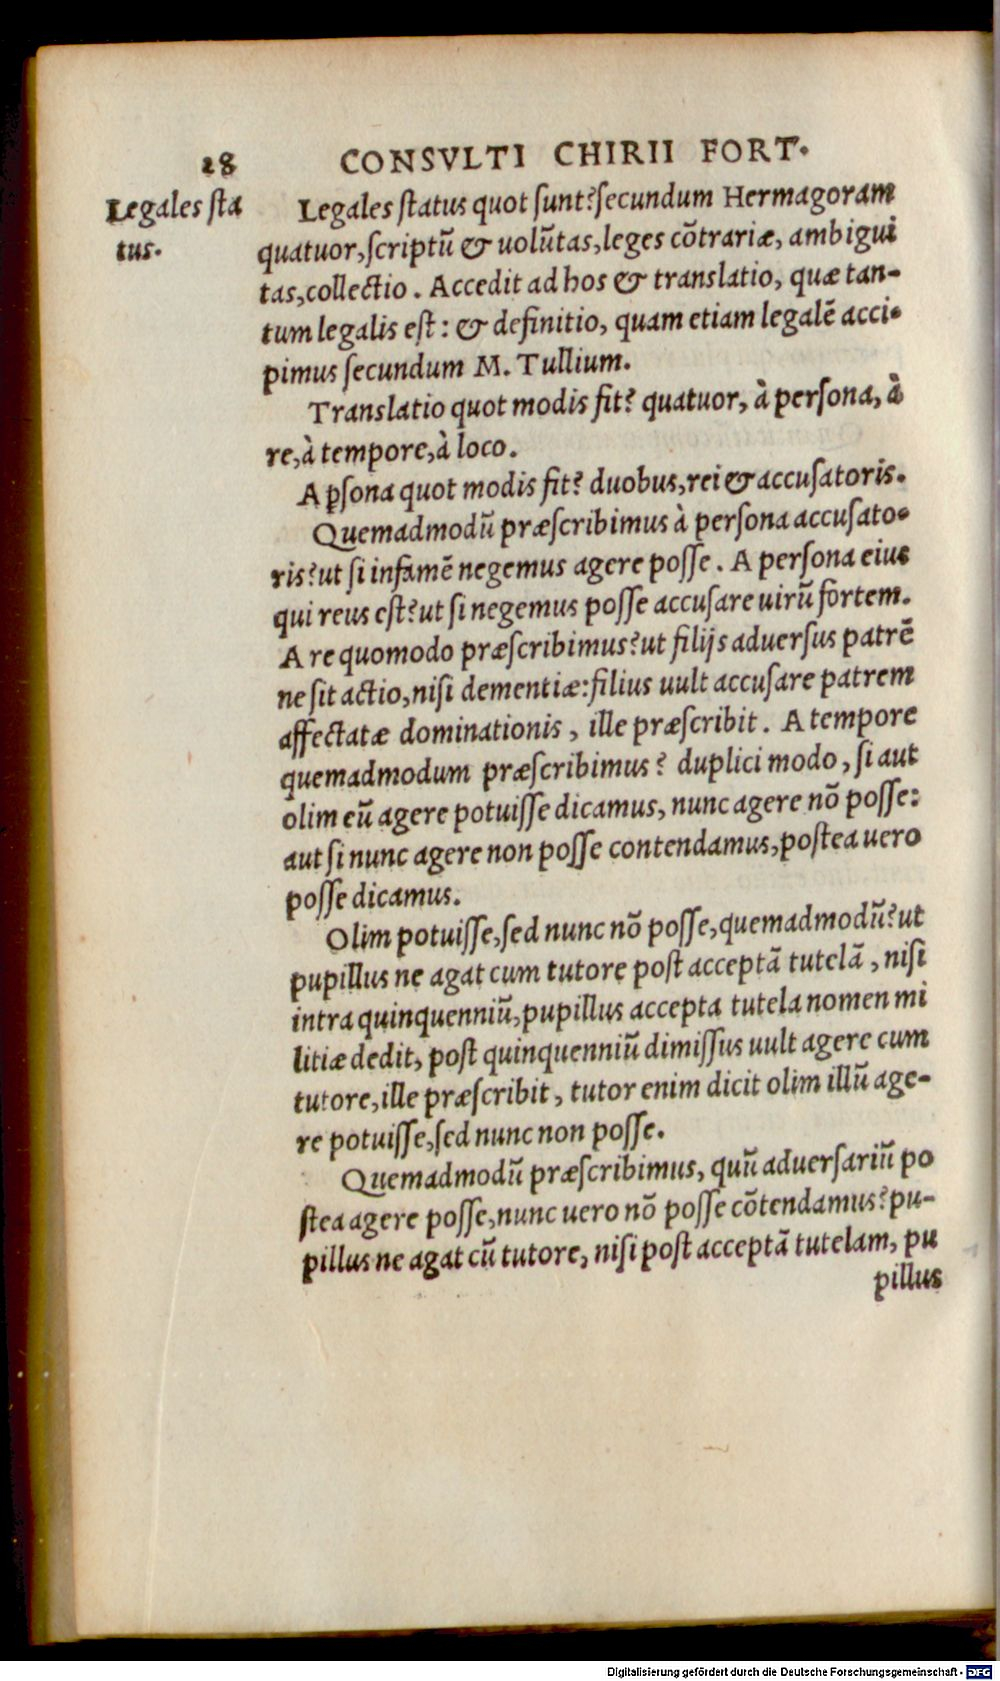 28 CONSVLTI CHIRII FORT.
Legales sta
tus.
Legales status quot sunt?secundum Hermagoram
quatuor,scriptū & uolūtas,leges cōtrariæ, ambigui
tas,collectio. Accedit ad hos & translatio, quæ tan-
tum legalis est: & definitio, quam etiam legalē acci-
pimus secundum M. Tullium.
Translatio quot modis fit? quatuor, à persona, à
re,à tempore,à loco.
A ꝑsona quot modis fit? duobus,rei & accusatoris.
Quemadmodū præscribimus à persona accusato-
ris?ut si infamē negemus agere posse. A persona eius
qui reus est?ut si negemus posse accusare uirū fortem.
A re quomodo præscribimus?ut filijs aduersus patrē
ne sit actio,nisi dementiæ:filius uult accusare patrem
affectatæ dominationis, ille præscribit. A tempore
quemadmodum præscribimus? duplici modo, si aut
olim eū agere potuisse dicamus, nunc agere nō posse:
aut si nunc agere non posse contendamus,postea uero
posse dicamus.
Olim potuisse,sed nunc nō posse,quemadmodū?ut
pupillus ne agat cum tutore post acceptā tutelā, nisi
intra quinquenniū,pupillus accepta tutela nomen mi
litiæ dedit, post quinquenniū dimissus uult agere cum
tutore,ille præscribit, tutor enim dicit olim illū age-
re potuisse,sed nunc non posse.
Quemadmodū præscribimus, quū aduersariū po
stea agere posse,nunc uero nō posse cōtendamus?pu-
pillus ne agat cū tutore, nisi post acceptā tutelam, pu
pillus
Digitalisierung gefördert durch die Deutsche Forschungsgemeinschaft - DFG